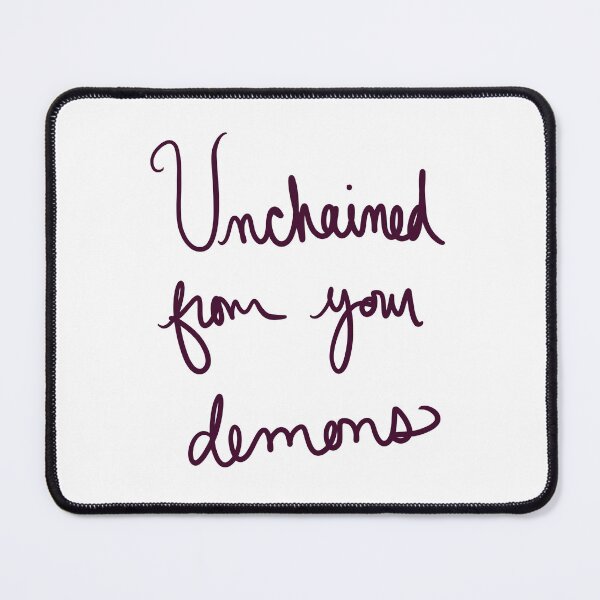 Unchained
from your
demons